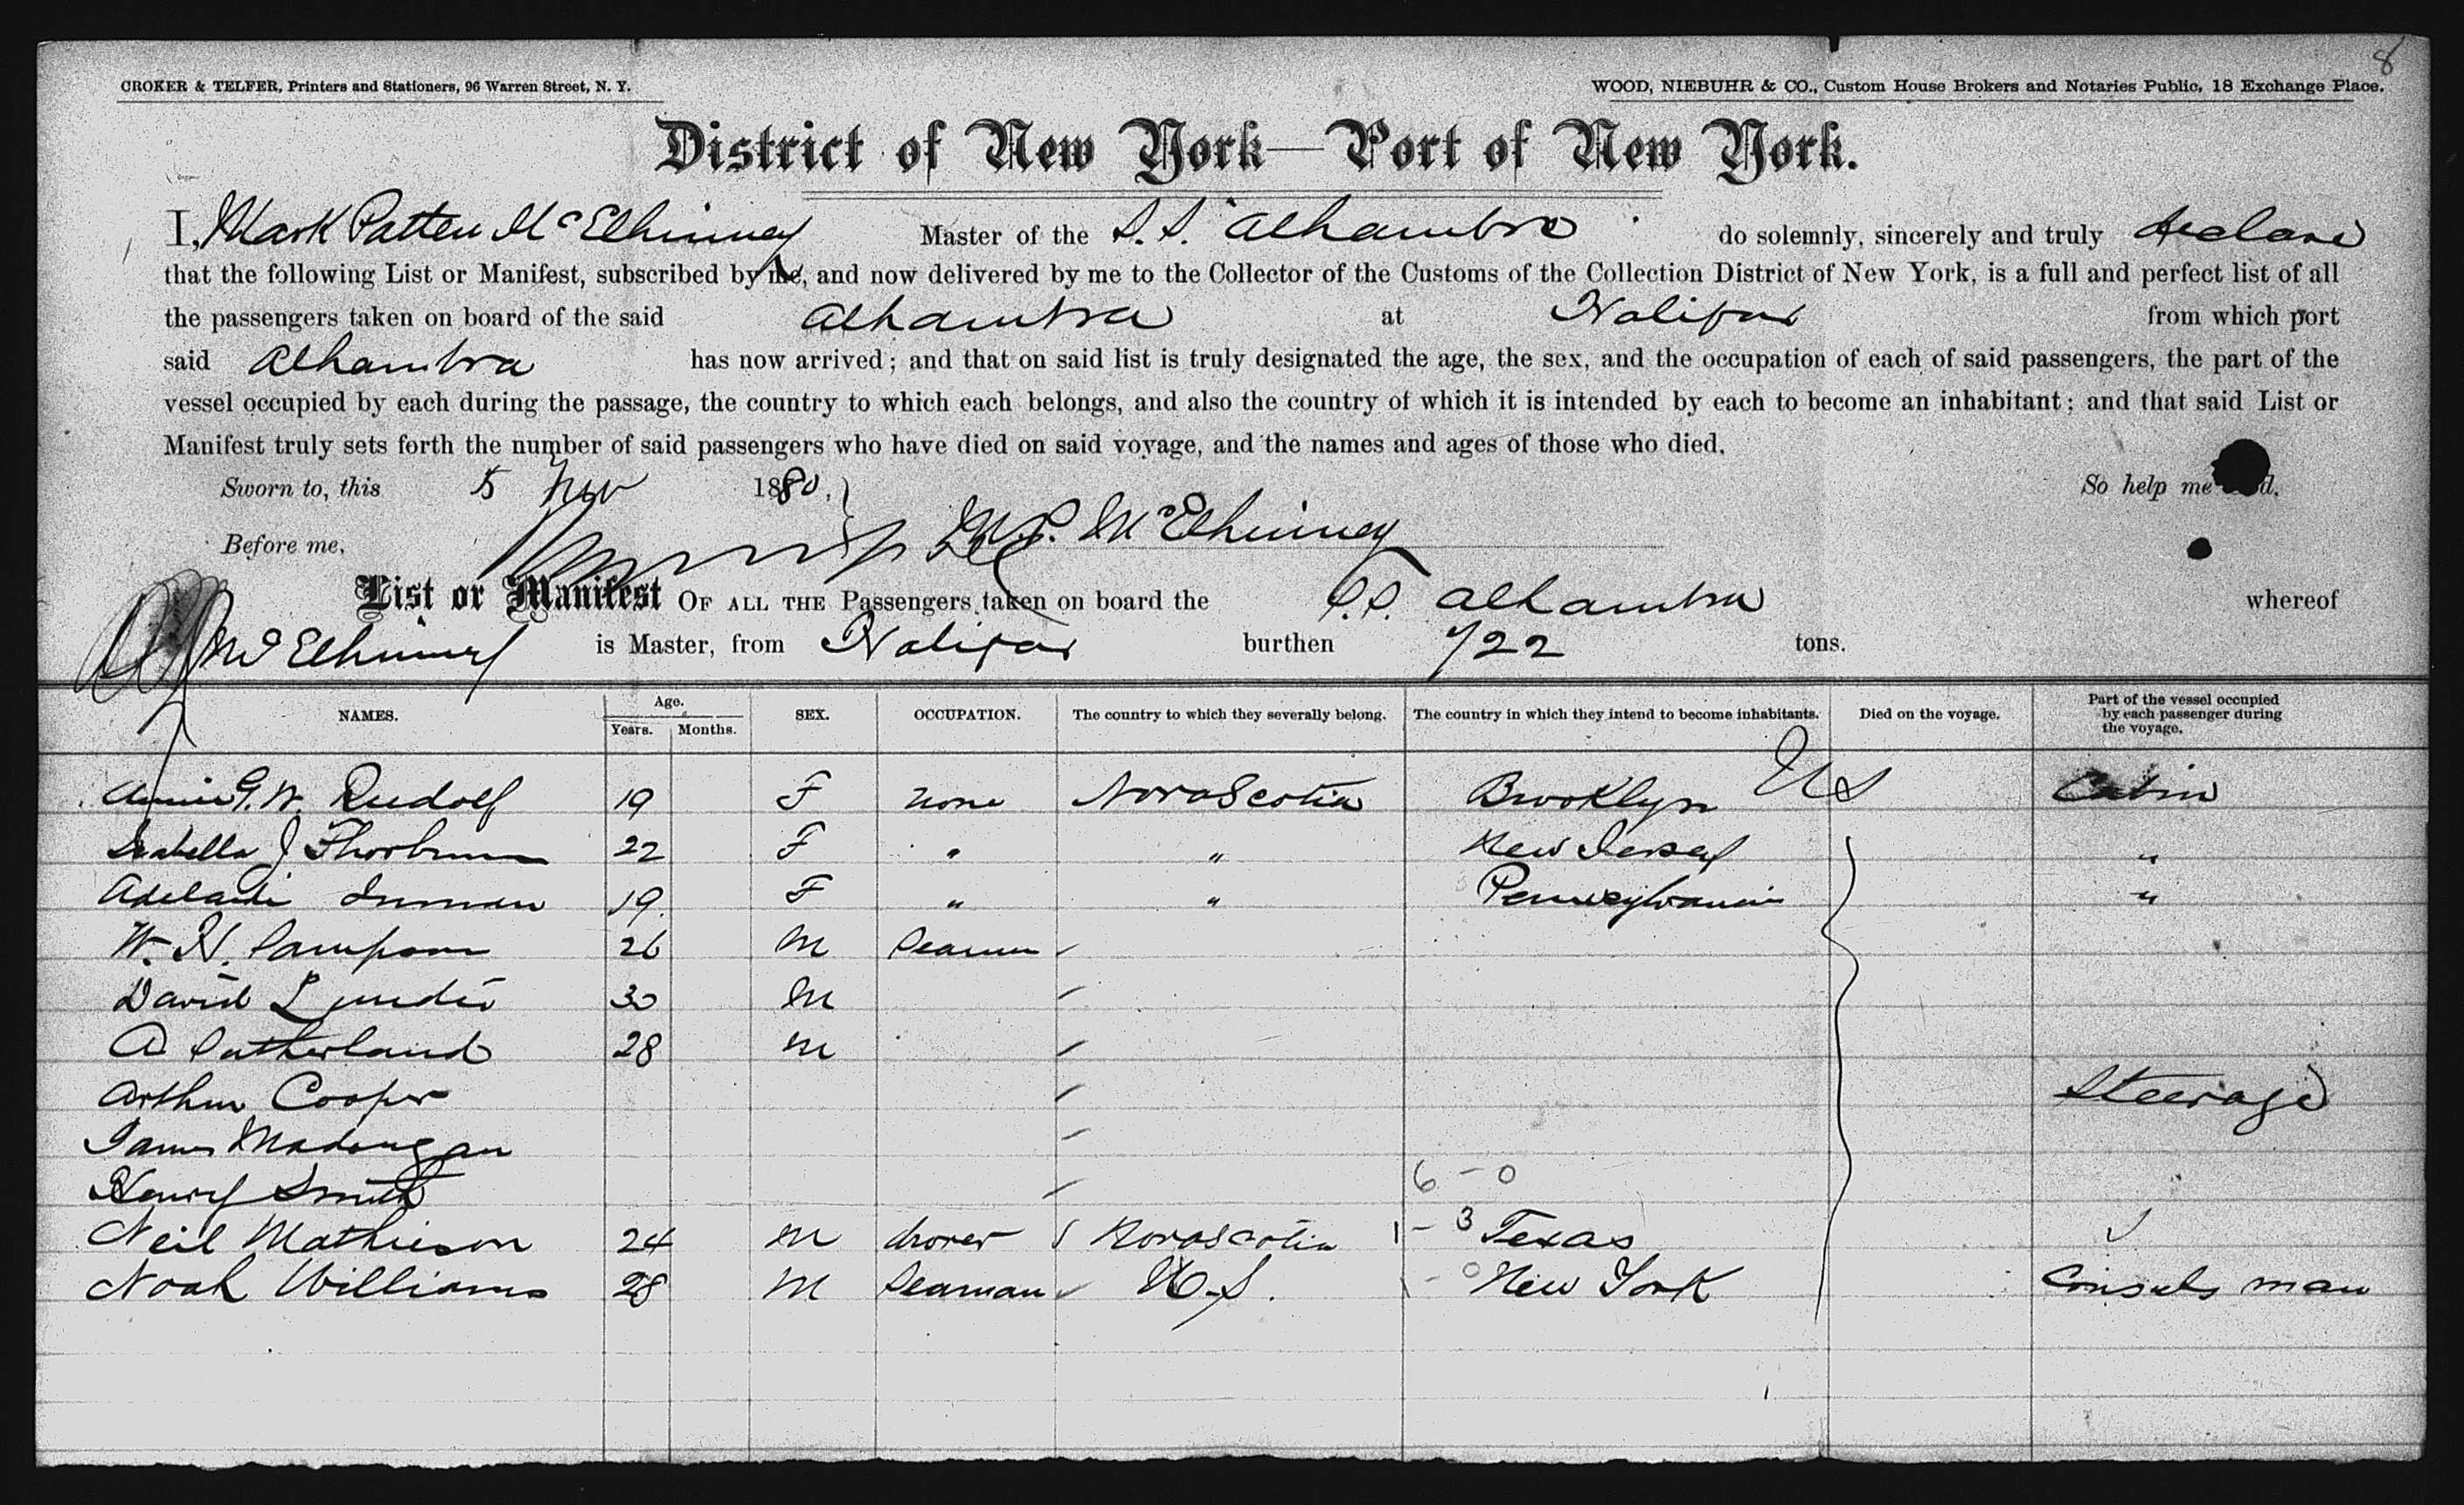 8
CROKER & TELFER, Printers and Stationers, 96 Warren Street, N. Y.
WOOD, NIEBUHR & CO., Custom House Brokers and Notaries Public, 18 Exchange Place.
District of New York—Port of New York.
I, Mark Patten McElhinney Master of the S.S. Alhambra do solemnly, sincerely and truly declare
that the following List or Manifest, subscribed by me, and now delivered by me to the Collector of the Customs of the Collection District of New York, is a full and perfect list of all
the passengers taken on board of the said Alhambra at Halifax from which port
said Alhambra has now arrived; and that on said list is truly designated the age, the sex, and the occupation of each of said passengers, the part of the
vessel occupied by each during the passage, the country to which each belongs, and also the country of which it is intended by each to become an inhabitant; and that said List or
Manifest truly sets forth the number of said passengers who have died on said voyage, and the names and ages of those who died.
Sworn to, this 5 Nov 1880. So help me d.
Before me, M.P. McElhinney
List or Manifest OF ALL THE Passengers taken on board the S.S. Alhambra whereof
McElhinney is Master, from Halifax burthen 722 tons.
NAMES. Age. Years. Months. SEX. OCCUPATION. The country to which they severally belong. The country in which they intend to become inhabitants. Died on the voyage. Part of the vessel occupied by each passenger during the voyage.
Annie G. W. Rudolf 19 F none Nova Scotia Brooklyn US Cabin
Isabella J Thorburn 22 F " " New Jersey "
Adelaide Inman 19. F " " Pennsylvania "
W. H. Sampson 26 M Seaman
David 30 M
A Sutherland 28 M
Arthur Cooper Steerage
James Madungan
Henry Smith 6 - 0
Neil Mathieson 24 M drover Nova Scotia 1 - 3 Texas
Noah Williams 28 M Seaman U.S. - 0 New York Consuls man